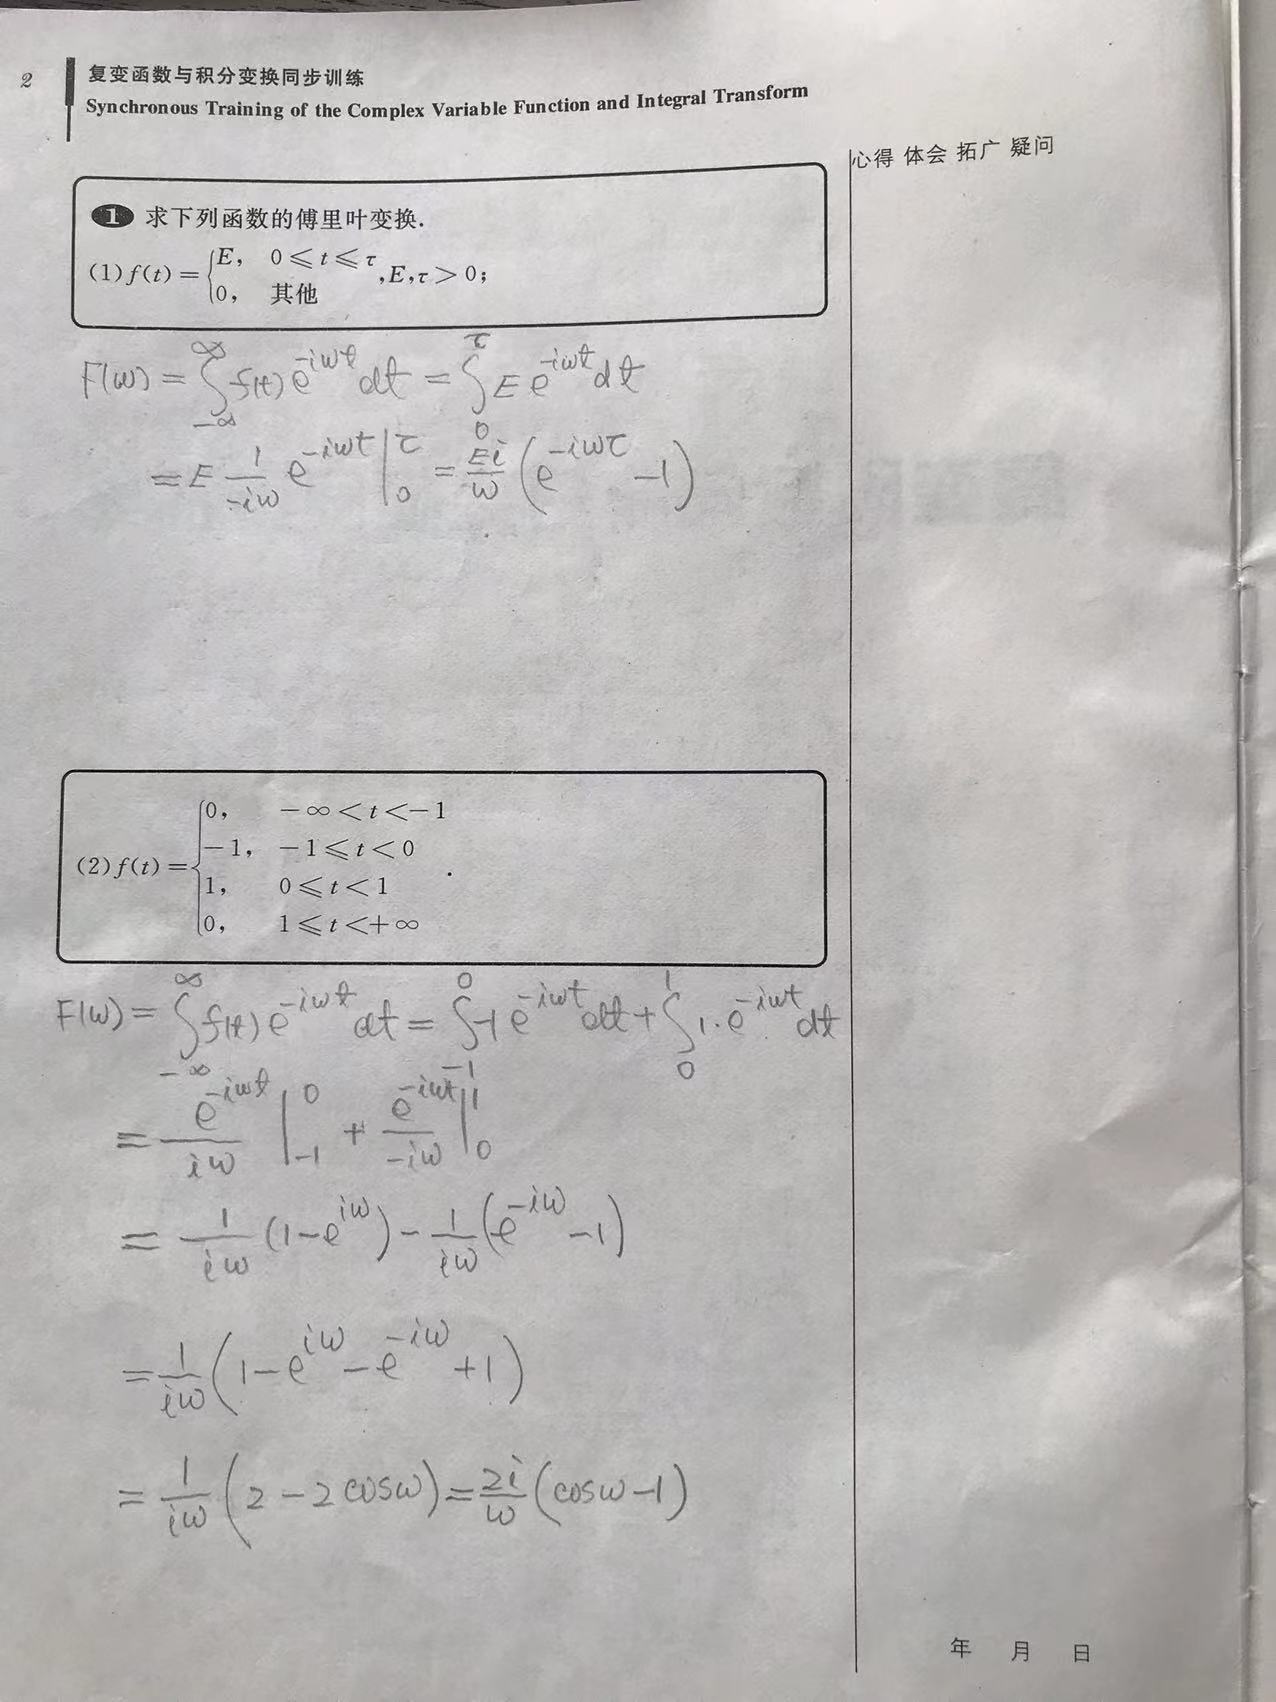 2
复变函数与积分变换同步训练
Synchronous Training of the Complex Variable Function and Integral Transform
心得 体会 拓广 疑问
1 求下列函数的傅里叶变换.
(1) f(t) = { E, 0 ⩽ t ⩽ τ
0, 其他 , E, τ > 0;
F(ω) = ∫_{-∞}^{∞} f(t) e^{-iωt} dt = ∫_0^τ E e^{-iωt} dt
= E 1/(-iω) e^{-iωt} |_0^τ = Ei/ω (e^{-iωτ} - 1)
(2) f(t) = { 0, -∞ < t < -1
-1, -1 ⩽ t < 0
1, 0 ⩽ t < 1
0, 1 ⩽ t < +∞ .
F(ω) = ∫_{-∞}^{∞} f(t) e^{-iωt} dt = ∫_{-1}^0 -1 e^{-iωt} dt + ∫_0^1 1· e^{-iωt} dt
= e^{-iωt}/(iω) |_{-1}^0 + e^{-iωt}/(-iω) |_0^1
= 1/(iω) (1 - e^{iω}) - 1/(iω) (e^{-iω} - 1)
= 1/(iω) (1 - e^{iω} - e^{-iω} + 1)
= 1/(iω) (2 - 2cosω) = 2i/ω (cosω - 1)
年 月 日